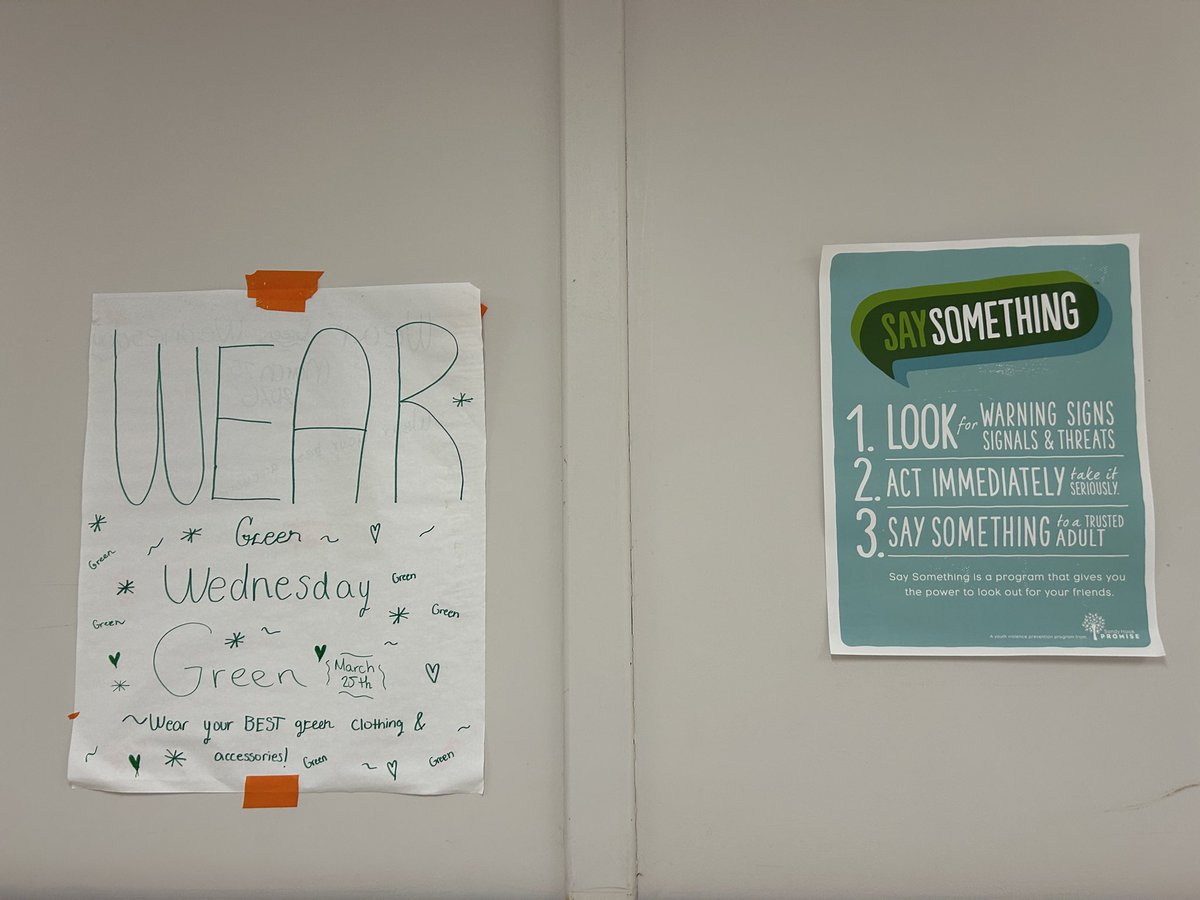 WEAR
Green
Wednesday
Green
March
25th
Wear your BEST green clothing &
accessories!
Green
Green
Green
Green
Green
Green
SAY SOMETHING
1. LOOK for WARNING SIGNS
SIGNALS & THREATS
2. ACT IMMEDIATELY take it
SERIOUSLY.
3. SAY SOMETHING to a TRUSTED
ADULT
Say Something is a program that gives you
the power to look out for your friends.
A youth violence prevention program from
Sandy Hook
PROMISE